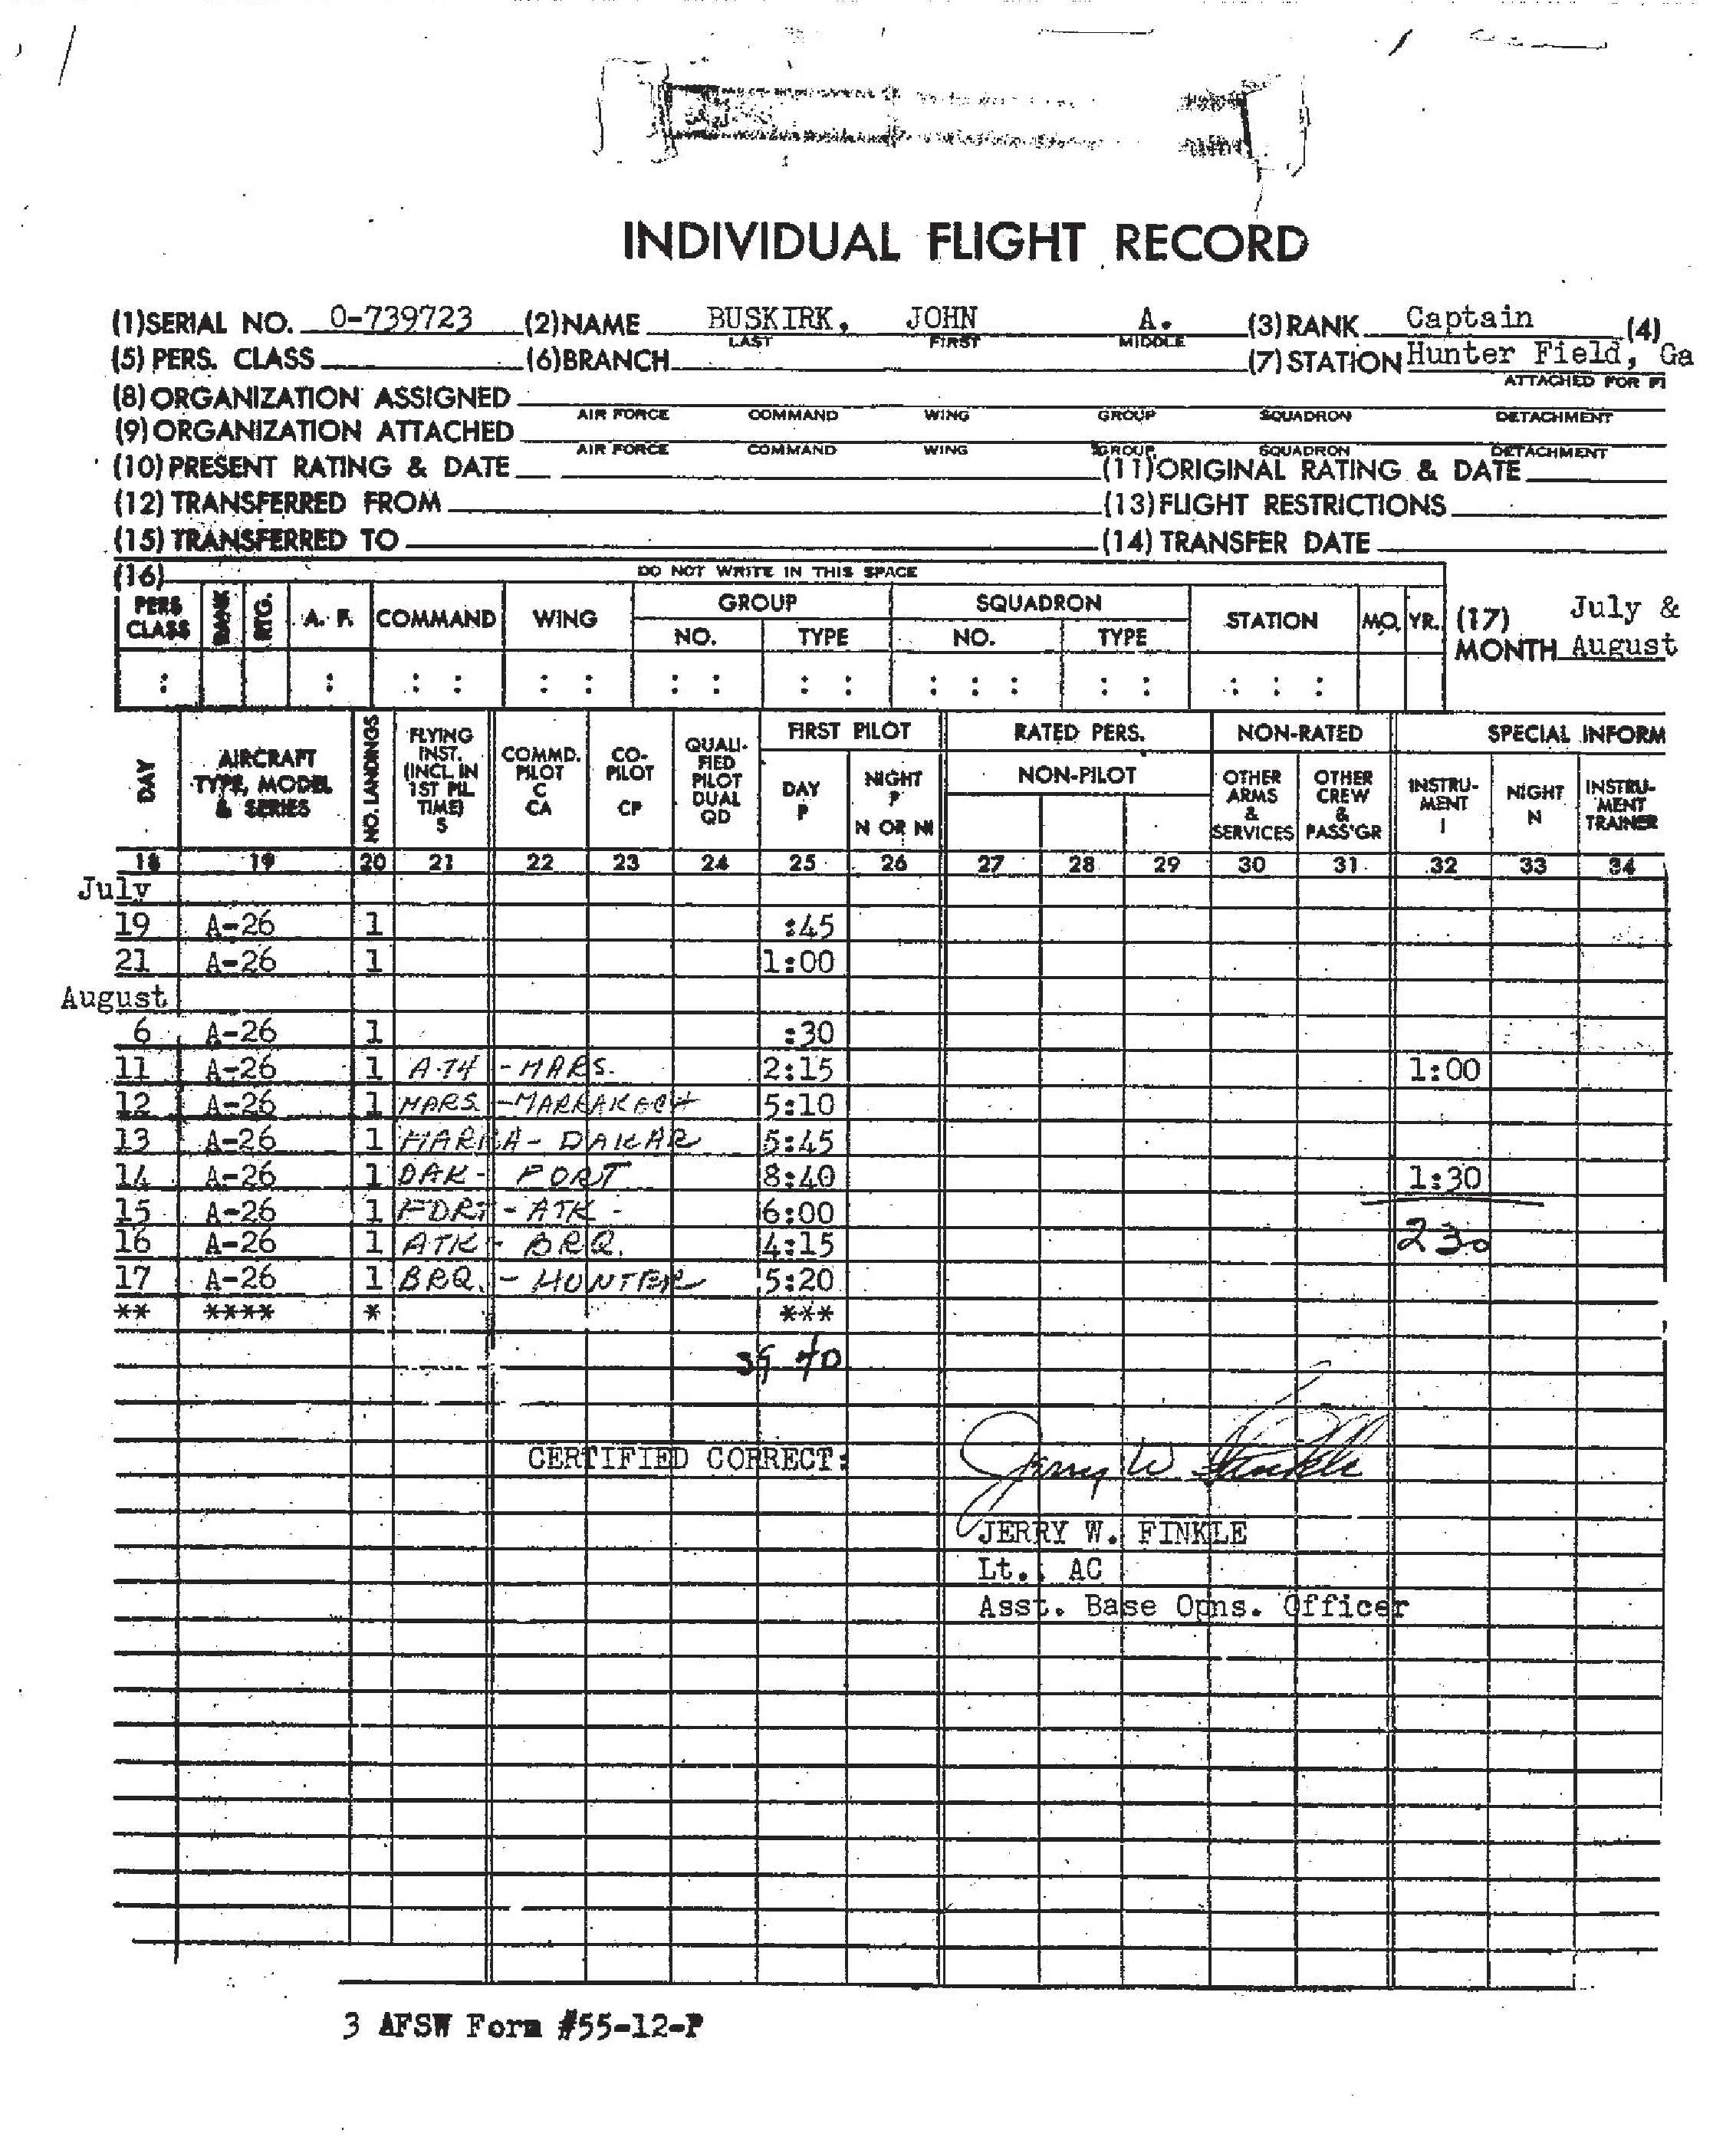 INDIVIDUAL FLIGHT RECORD
(1)SERIAL NO. 0-739723 (2)NAME BUSKIRK, JOHN A. (3)RANK Captain (4)
LAST FIRST MIDDLE
(5)PERS. CLASS (6)BRANCH (7)STATION Hunter Field, Ga
ATTACHED FOR Fl
(8)ORGANIZATION ASSIGNED
AIR FORCE COMMAND WING GROUP SQUADRON DETACHMENT
(9)ORGANIZATION ATTACHED
AIR FORCE COMMAND WING GROUP SQUADRON DETACHMENT
(10)PRESENT RATING & DATE (11)ORIGINAL RATING & DATE
(12)TRANSFERRED FROM (13)FLIGHT RESTRICTIONS
(15)TRANSFERRED TO (14)TRANSFER DATE
(16) DO NOT WRITE IN THIS SPACE
PERS CLASS RANK RTG. A. F. COMMAND WING GROUP NO. TYPE SQUADRON NO. TYPE STATION MO. YR. (17) MONTH July & August
DAY AIRCRAFT TYPE, MODEL & SERIES NO. LANDINGS FLYING INST. (INCL. IN 1ST PIL. TIME) S COMMD. PILOT C CA CO-PILOT CP QUALI-FIED PILOT DUAL QD FIRST PILOT DAY P NIGHT P N OR NI RATED PERS. NON-PILOT NON-RATED OTHER ARMS & SERVICES OTHER CREW & PASS'GR SPECIAL INFORM INSTRU-MENT I NIGHT N INSTRU-MENT TRAINER
18 19 20 21 22 23 24 25 26 27 28 29 30 31 32 33 34
July
19 A-26 1 :45
21 A-26 1 1:00
August
6 A-26 1 :30
11 A-26 1 ATH - MARS. 2:15 1:00
12 A-26 1 MARS - MARRAKECH 5:10
13 A-26 1 MARRA - DAKAR 5:45
14 A-26 1 DAK - FORT 8:40 1:30
15 A-26 1 FORT - ATK - 6:00
16 A-26 1 ATK - BRQ. 4:15 230
17 A-26 1 BRQ. - HUNTER 5:20
** **** * ***
39 40
CERTIFIED CORRECT: Jerry W Finkle
JERRY W. FINKLE
Lt., AC
Asst. Base Opns. Officer
3 AFSW Form #55-12-P